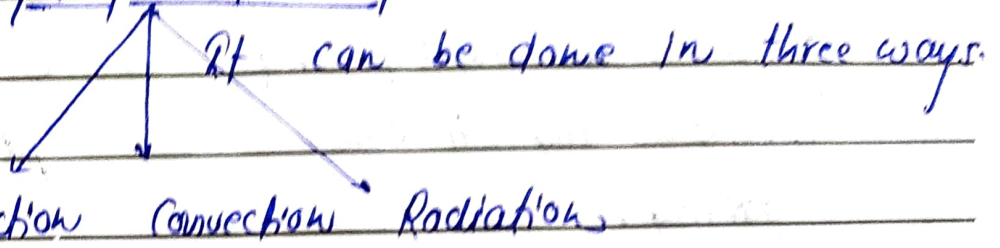 It can be done in three ways.
ction Convection Radiation